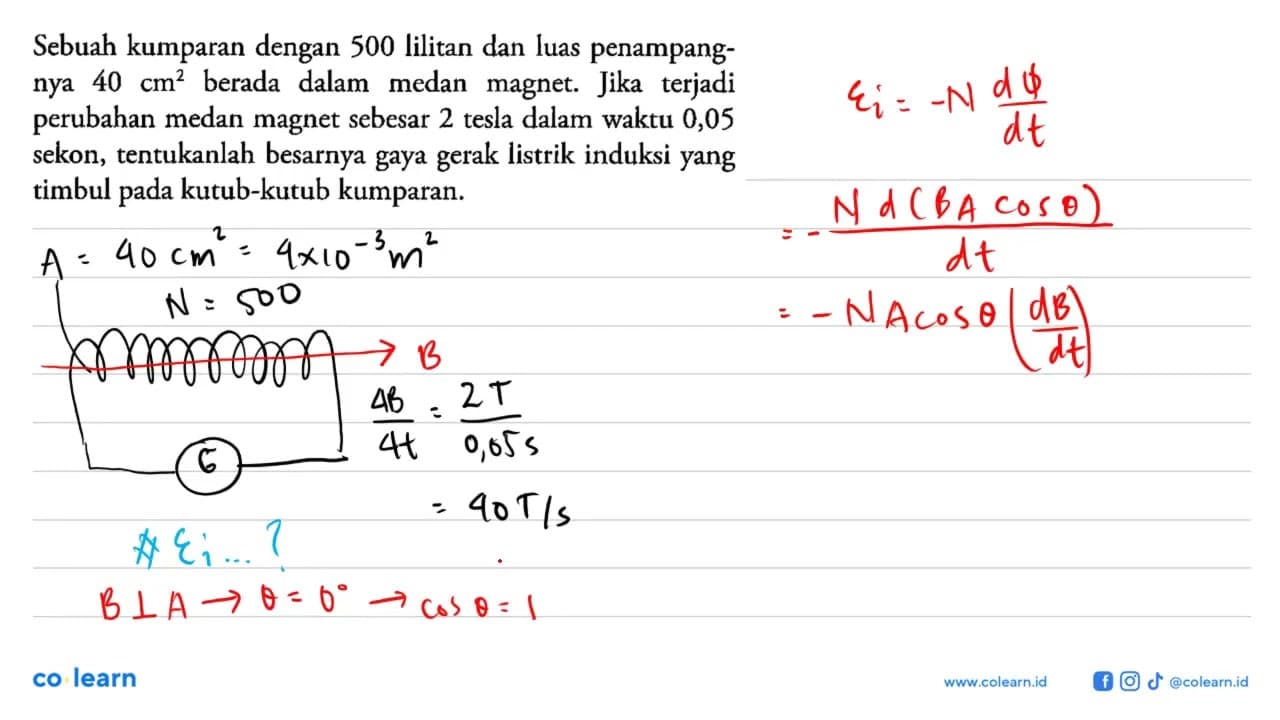 Sebuah kumparan dengan 500 lilitan dan luas penampang-
nya 40 cm² berada dalam medan magnet. Jika terjadi
perubahan medan magnet sebesar 2 tesla dalam waktu 0,05
sekon, tentukanlah besarnya gaya gerak listrik induksi yang
timbul pada kutub-kutub kumparan.
A = 40 cm² = 4×10⁻³ m²
N = 500
B
ΔB/Δt = 2 T/0,05 s
G
= 40 T/s
# εi ... ?
B ⊥ A → θ = 0° → cos θ = 1
εi = -N dϕ/dt
= - N d(BA cos θ)/dt
= - N A cos θ (dB/dt)
co·learn
www.colearn.id
@colearn.id